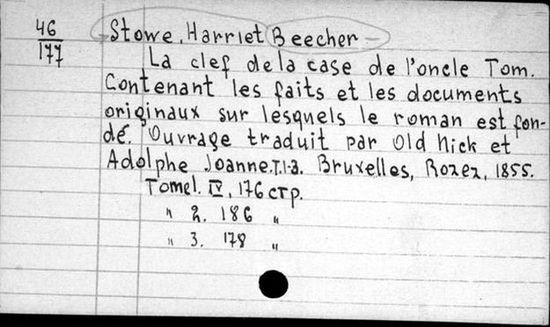 46
177
Stowe, Harriet Beecher
La clef de la case de l'oncle Tom.
Contenant les faits et les documents
originaux sur lesquels le roman est fon-
dé. Ouvrage traduit par Old Nick et
Adolphe Joanne. T.1-3. Bruxelles, Rozez, 1855.
Tome 1. IV, 176 стр.
" 2. 186 "
" 3. 178 "